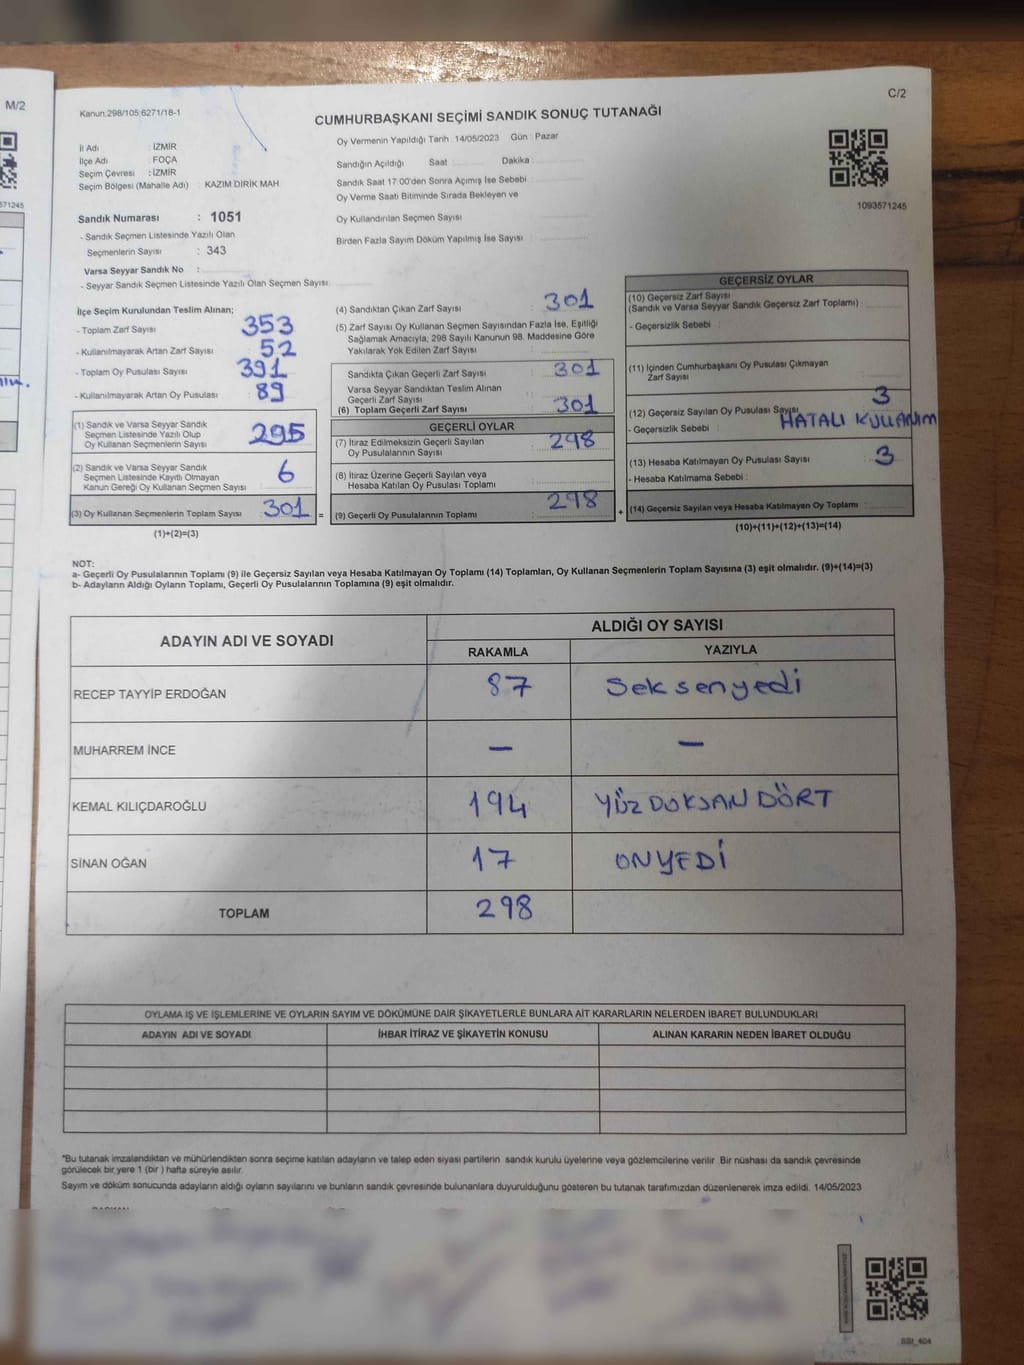 M/2
571245
C/2
Kanun:298/105;6271/18-1
CUMHURBAŞKANI SEÇİMİ SANDIK SONUÇ TUTANAĞI
Oy Vermenin Yapıldığı Tarih 14/05/2023 Gün : Pazar
İl Adı : İZMİR
İlçe Adı : FOÇA
Seçim Çevresi : İZMİR
Seçim Bölgesi (Mahalle Adı) : KAZIM DİRİK MAH
Sandığın Açıldığı Saat Dakika :
Sandık Saat 17:00'den Sonra Açımış İse Sebebi
Oy Verme Saati Bitiminde Sırada Bekleyen ve
Oy Kullandırılan Seçmen Sayısı
Birden Fazla Sayım Döküm Yapılmış İse Sayısı
1093571245
Sandık Numarası : 1051
- Sandık Seçmen Listesinde Yazılı Olan
Seçmenlerin Sayısı : 343
Varsa Seyyar Sandık No :
- Seyyar Sandık Seçmen Listesinde Yazılı Olan Seçmen Sayısı:
İlçe Seçim Kurulundan Teslim Alınan;
- Toplam Zarf Sayısı 353
- Kullanılmayarak Artan Zarf Sayısı 52
- Toplam Oy Pusulası Sayısı 391
- Kullanılmayarak Artan Oy Pusulası 89
(1) Sandık ve Varsa Seyyar Sandık
Seçmen Listesinde Yazılı Olup
Oy Kullanan Seçmenlerin Sayısı
295
(2) Sandık ve Varsa Seyyar Sandık
Seçmen Listesinde Kayıtlı Olmayan
Kanun Gereği Oy Kullanan Seçmen Sayısı :
6
(3) Oy Kullanan Seçmenlerin Toplam Sayısı : 301 =
(1)+(2)=(3)
(4) Sandıktan Çıkan Zarf Sayısı : 301
(5) Zarf Sayısı Oy Kullanan Seçmen Sayısından Fazla İse, Eşitliği
Sağlamak Amacıyla, 298 Sayılı Kanunun 98. Maddesine Göre
Yakılarak Yok Edilen Zarf Sayısı :
Sandıkta Çıkan Geçerli Zarf Sayısı : 301
Varsa Seyyar Sandıktan Teslim Alınan
Geçerli Zarf Sayısı :
(6) Toplam Geçerli Zarf Sayısı : 301
GEÇERLİ OYLAR
(7) İtiraz Edilmeksizin Geçerli Sayılan
Oy Pusulalarının Sayısı : 298
(8) İtiraz Üzerine Geçerli Sayılan veya
Hesaba Katılan Oy Pusulası Toplamı :
(9) Geçerli Oy Pusulalarının Toplamı : 298 +
GEÇERSİZ OYLAR
(10) Geçersiz Zarf Sayısı
(Sandık ve Varsa Seyyar Sandık Geçersiz Zarf Toplamı) :
- Geçersizlik Sebebi :
(11) İçinden Cumhurbaşkanı Oy Pusulası Çıkmayan
Zarf Sayısı :
(12) Geçersiz Sayılan Oy Pusulası Sayısı 3
- Geçersizlik Sebebi : HATALI KULLANIM
(13) Hesaba Katılmayan Oy Pusulası Sayısı : 3
- Hesaba Katılmama Sebebi :
(14) Geçersiz Sayılan veya Hesaba Katılmayan Oy Toplamı :
(10)+(11)+(12)+(13)=(14)
NOT:
a- Geçerli Oy Pusulalarının Toplamı (9) ile Geçersiz Sayılan veya Hesaba Katılmayan Oy Toplamı (14) Toplamları, Oy Kullanan Seçmenlerin Toplam Sayısına (3) eşit olmalıdır. (9)+(14)=(3)
b- Adayların Aldığı Oyların Toplamı, Geçerli Oy Pusulalarının Toplamına (9) eşit olmalıdır.
ADAYIN ADI VE SOYADI ALDIĞI OY SAYISI
RAKAMLA YAZIYLA
RECEP TAYYİP ERDOĞAN 87 Seksenyedi
MUHARREM İNCE — —
KEMAL KILIÇDAROĞLU 194 YÜZ DOKSAN DÖRT
SİNAN OĞAN 17 ONYEDİ
TOPLAM 298
OYLAMA İŞ VE İŞLEMLERİNE VE OYLARIN SAYIM VE DÖKÜMÜNE DAİR ŞİKAYETLERLE BUNLARA AİT KARARLARIN NELERDEN İBARET BULUNDUKLARI
ADAYIN ADI VE SOYADI İHBAR İTİRAZ VE ŞİKAYETİN KONUSU ALINAN KARARIN NEDEN İBARET OLDUĞU
*Bu tutanak imzalandıktan ve mühürlendikten sonra seçime katılan adayların ve talep eden siyasi partilerin sandık kurulu üyelerine veya gözlemcilerine verilir. Bir nüshası da sandık çevresinde
görülecek bir yere 1 (bir ) hafta süreyle asılır.
Sayım ve döküm sonucunda adayların aldığı oyların sayılarını ve bunların sandık çevresinde bulunanlara duyurulduğunu gösteren bu tutanak tarafımızdan düzenlenerek imza edildi. 14/05/2023